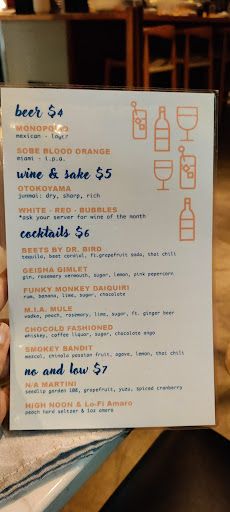 beer $4
MONOPOLIO
mexican - lager
SOBE BLOOD ORANGE
miami - i.p.a.
wine & sake $5
OTOKOYAMA
junmai: dry, sharp, rich
WHITE - RED - BUBBLES
*ask your server for wine of the month
cocktails $6
BEETS BY DR. BIRO
tequila, beet cordial, ft.grapefruit soda, thai chili
GEISHA GIMLET
gin, rosemary vermouth, sugar, lemon, pink peppercorn
FUNKY MONKEY DAIQUIRI
rum, banana, lime, sugar, chocolate
M.I.A. MULE
vodka, peach, rosemary, lime, sugar, ft. ginger beer
CHOCOLD FASHIONED
whiskey, coffee liquor, sugar, chocolate ango
SMOKEY BANDIT
mezcal, chinola passion fruit, agave, lemon, thai chili
no and low $7
N/A MARTINI
seedlip garden 108, grapefruit, yuzu, spiced cranberry
HIGH NOON & Lo-Fi Amaro
peach hard seltzer & loz amaro